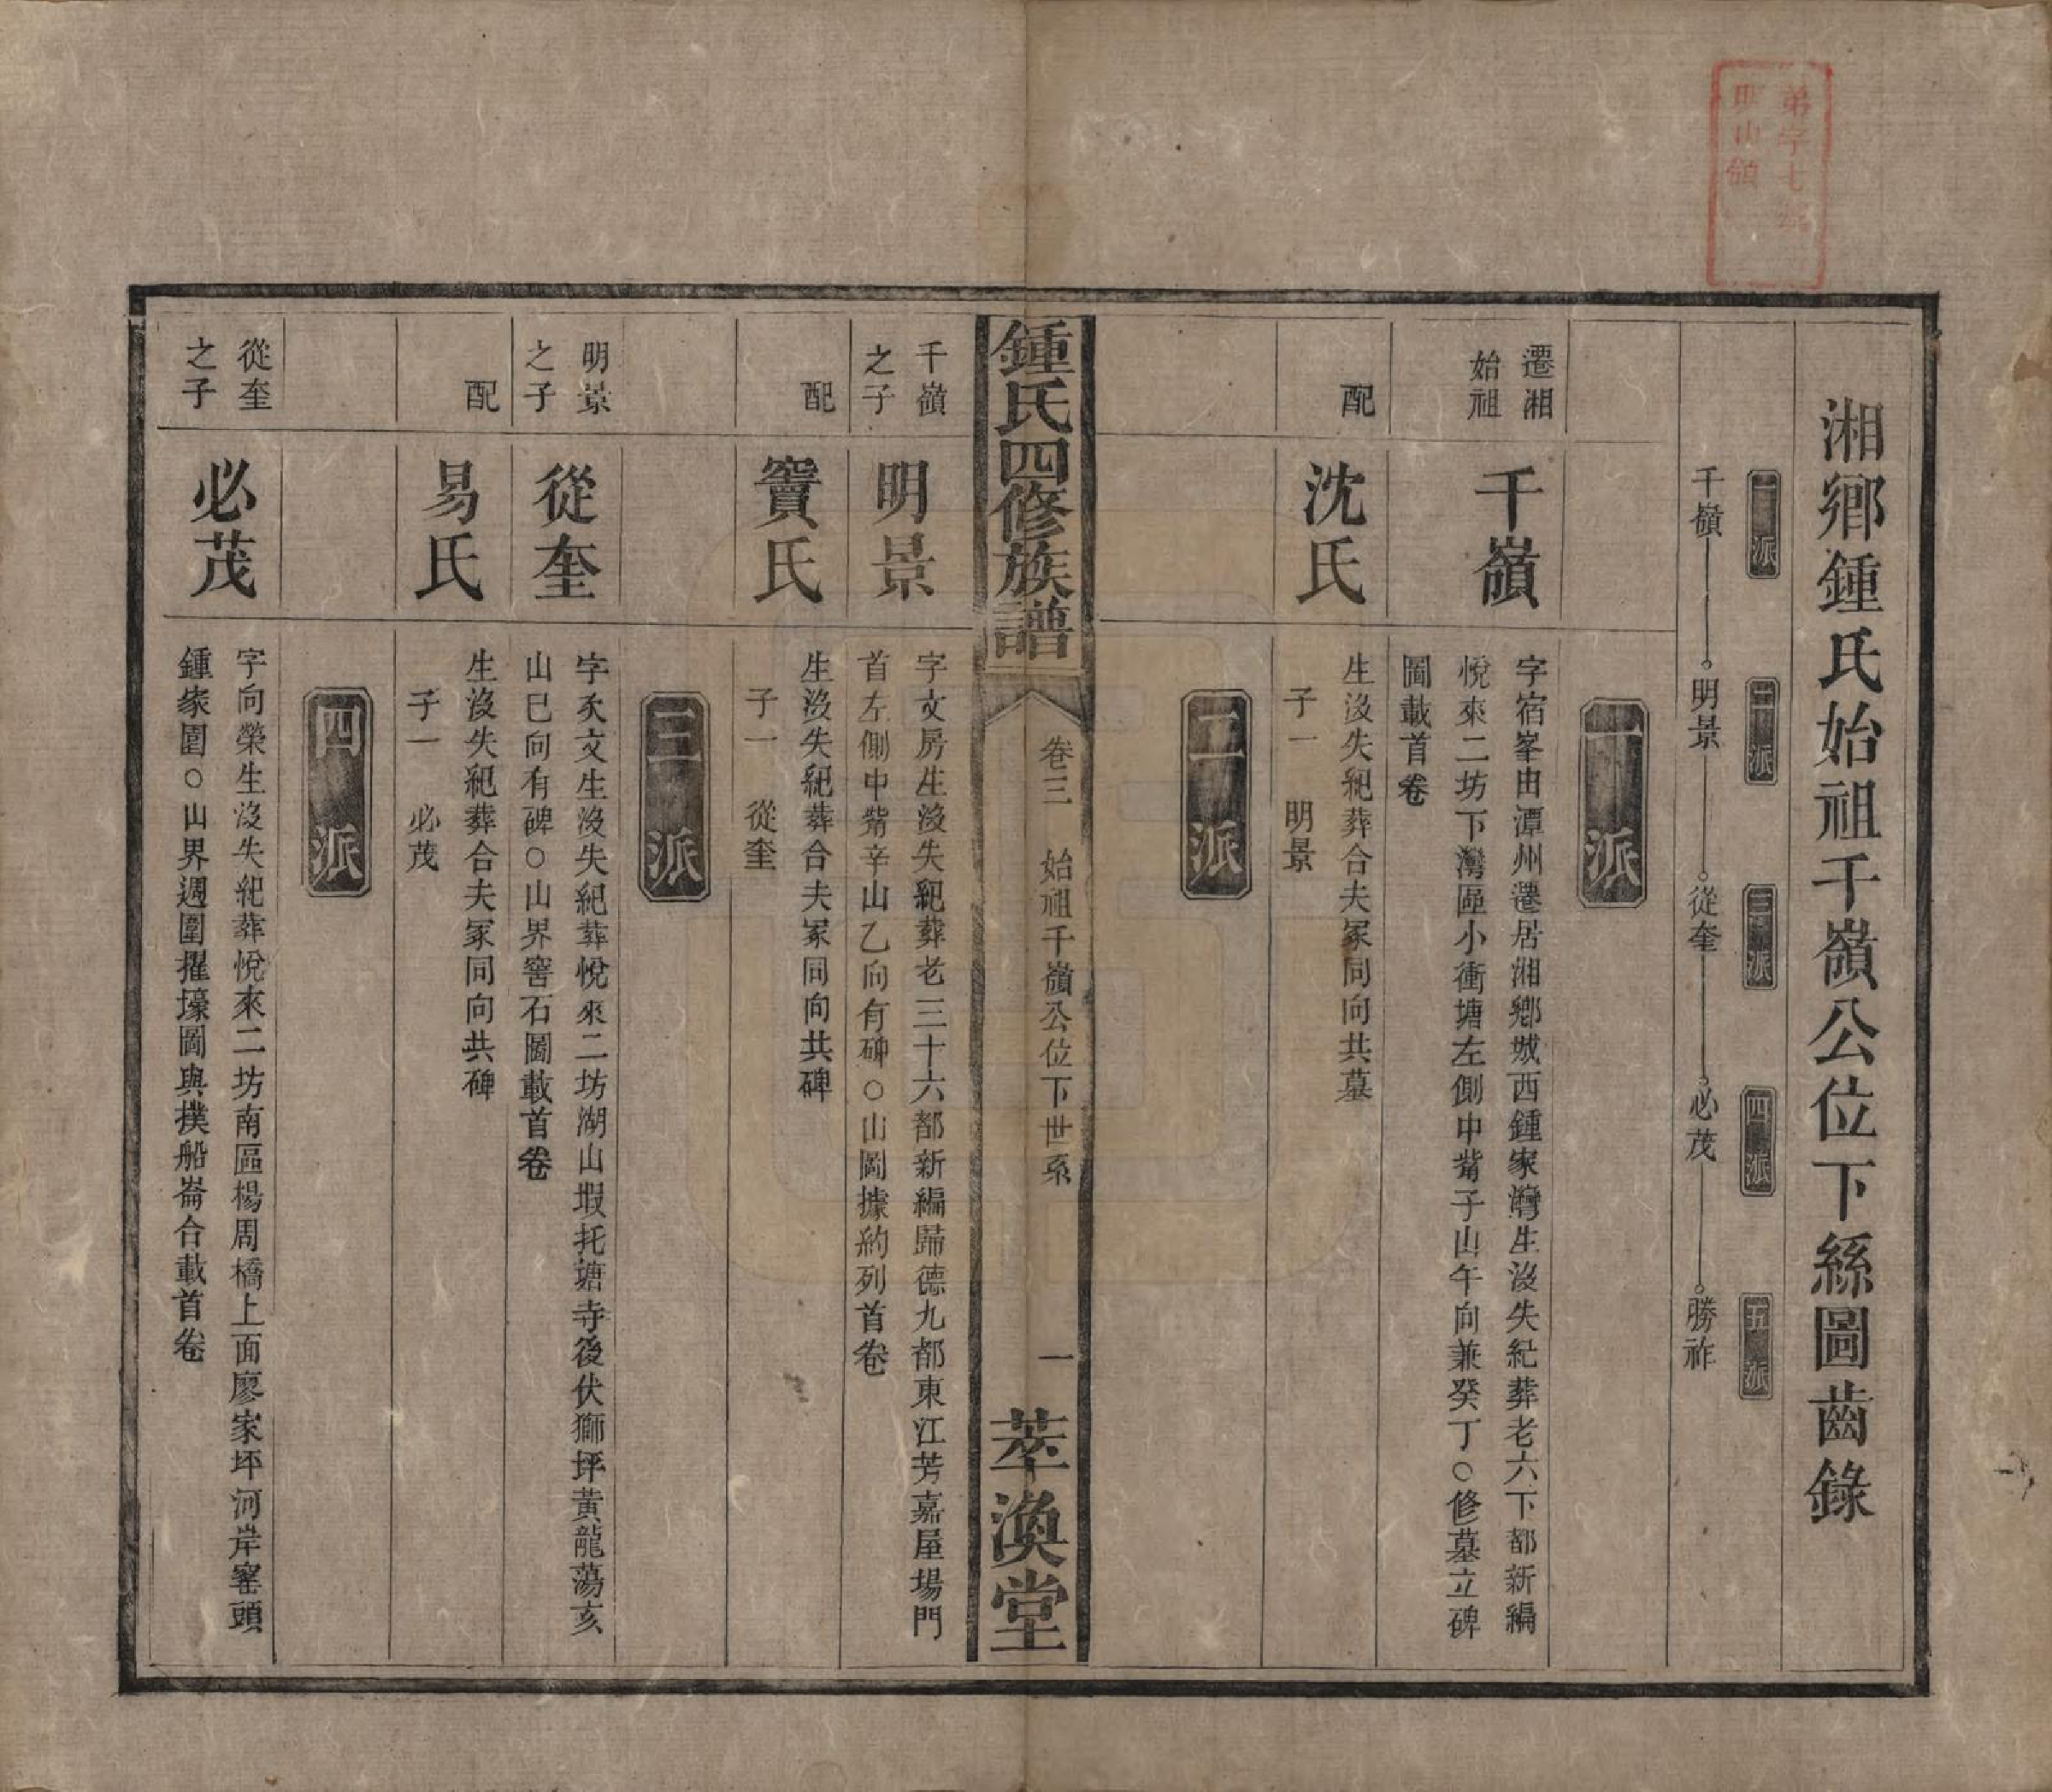 湘鄉鍾氏始祖千嶺公位下絲圖齒錄
一派
二派
三派
四派
五派
千嶺
明景
從奎
必茂
勝祚
一派
遷湘
始祖
千嶺
字宿峯由潭州遷居湘鄉城西鍾家灣生沒失紀葬老六下都新編
悅來二坊下灣區小衝塘左側中觜子山午向兼癸丁○修墓立碑
圖載首卷
配
沈氏
生沒失紀葬合夫冢同向共墓
子一 明景
二派
鍾氏四修族譜
卷三 始祖千嶺公位下世系
一
萃渙堂
千嶺
之子
明景
字文房生沒失紀葬老三十六都新編歸德九都東江芳嘉屋場門
首左側中觜辛山乙向有碑○山圖據約列首卷
配
竇氏
生沒失紀葬合夫冢同向共碑
子一 從奎
三派
明景
之子
從奎
字炙文生沒失紀葬悅來二坊湖山塅托塘寺後伏獅坪黃龍蕩亥
山巳向有碑○山界窖石圖載首卷
配
易氏
生沒失紀葬合夫冢同向共碑
子一 必茂
四派
從奎
之子
必茂
字向榮生沒失紀葬悅來二坊南區楊周橋上面廖家坪河岸窰頭
鍾家圍○山界週圍擢壕圖與撲船崙合載首卷
弟字七號